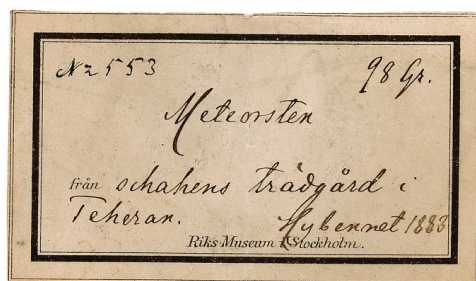 No 553 98 Gr.
Meteorsten
från schahens trädgård i
Teheran. Hybennet 1883
Riks Museum i Stockholm.